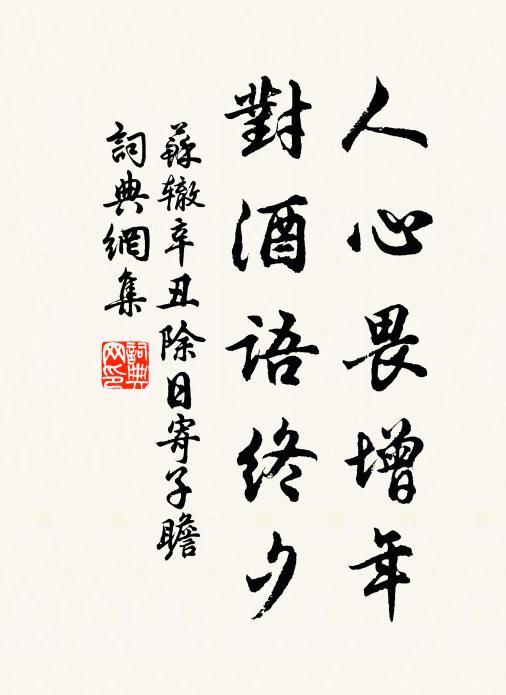 人心畏增年
對酒語終夕
蘇辙辛丑除日寄子瞻
詞典網集
詞典网印